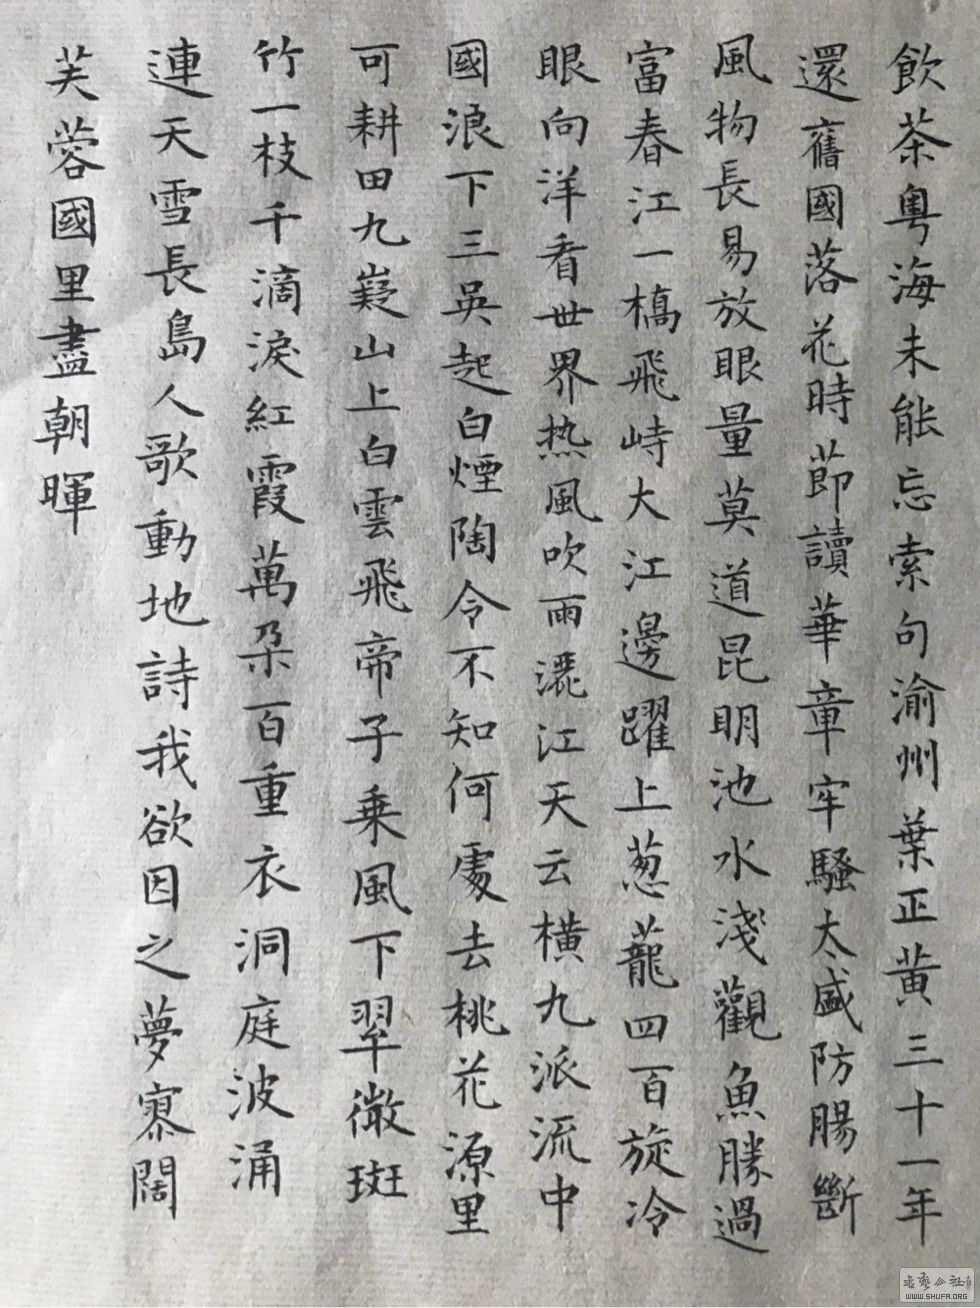 飲茶粵海未能忘索句渝州葉正黃三十一年
還舊國落花時莭讀華章牢騷太盛防腸斷
風物長易放眼量莫道昆明池水淺觀魚勝過
富春江一槗飛峙大江邊躍上葱蘢四百旋冷
眼向洋看世界热風吹雨灑江天云橫九派流中
國浪下三吳起白煙陶令不知何處去桃花源里
可耕田九嶷山上白雲飛帝子乘風下翠微斑
竹一枝千滴淚紅霞萬朵百重衣洞庭波涌
連天雪長島人歌動地詩我欲因之夢寥闊
芙蓉國里盡朝暉
書藝公社
WWW.SHUFA.ORG